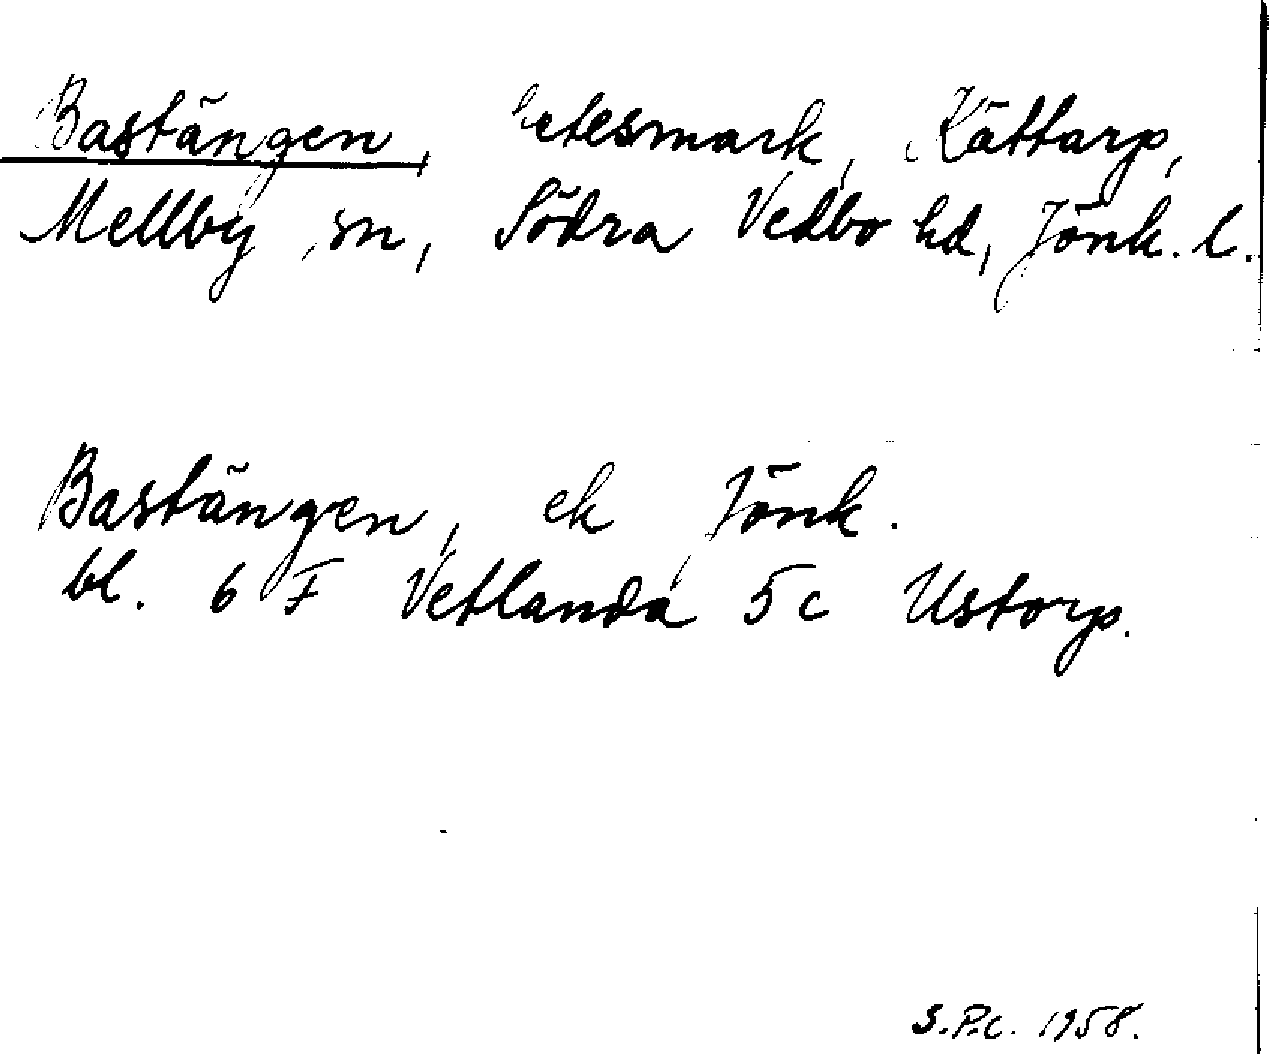 Bastängen, betesmark, Kättarp,
Mellby sn, Södra Vedbo hd, Jönk. l.
Bastängen, ek Jönk.
bl. 6 F Vetlanda 5c Ustorp.
S.P.C. 1958.